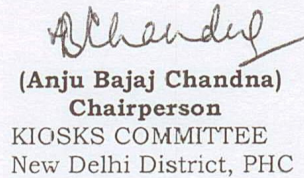 AChandna
(Anju Bajaj Chandna)
Chairperson
KIOSKS COMMITTEE
New Delhi District, PHC